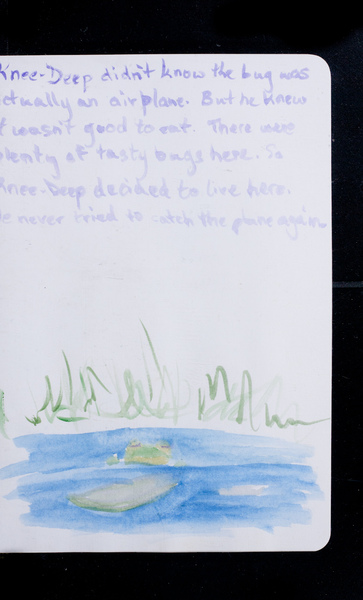 Knee-Deep didn't know the bug was
actually an airplane. But he knew
it wasn't good to eat. There were
plenty of tasty bugs here. So
Knee-Deep decided to live here.
He never tried to catch the plane again.